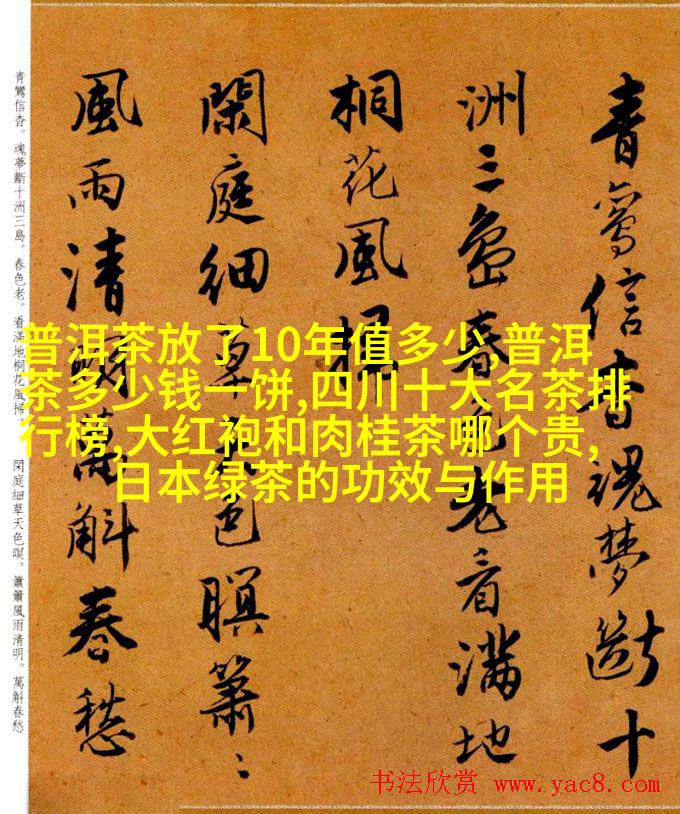 青鸞信杳魂夢斷十
洲三島春色老看滿地
桐花風掃
閑庭細草天色瞑簫〻
風雨清明萬斛春愁
青鸞信杳。魂夢斷十洲三島。春色老。看滿地桐花風掃。 閑庭細草天色瞑。簫簫風雨清明。萬斛春愁
普洱茶放了10年值多少,普洱
茶多少钱一饼,四川十大名茶排
行榜,大红袍和肉桂茶哪个贵,
日本绿茶的功效与作用
书法欣赏 www.yac8.com